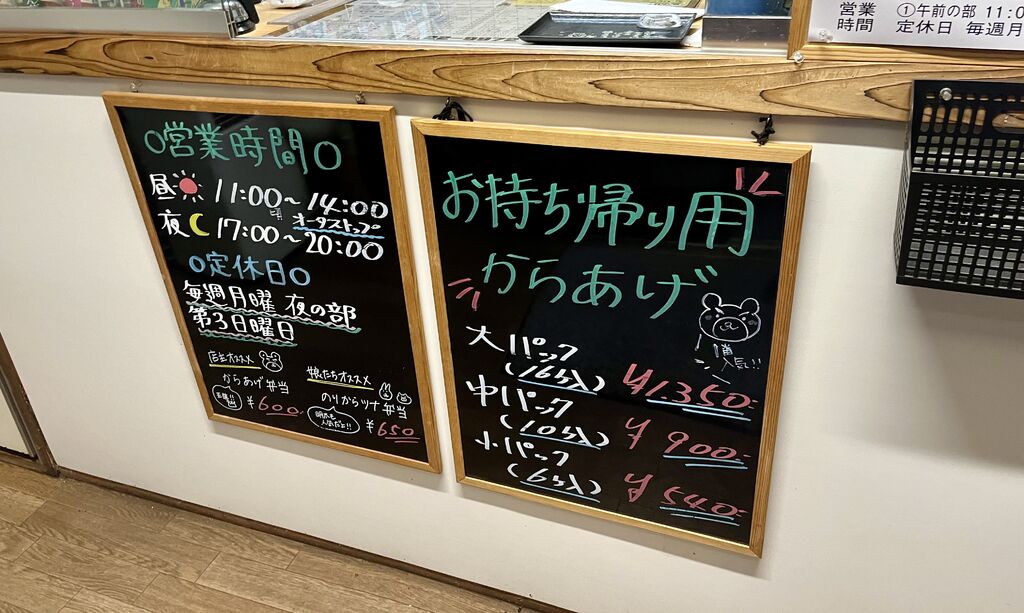 営業 ①午前の部 11:0
時間 定休日 毎週月
○営業時間○
昼 11:00~14:00
オーダーストップ
夜 17:00~20:00
○定休日○
毎週月曜 夜の部
第3日曜日
店主オススメ
からあげ弁当
¥600-
娘たちオススメ
のりからツナ弁当
明太も
人気だよ!!
¥650
お持ち帰り用
からあげ
1番
人気!!
大パック
(16コ入) ¥1,350-
中パック
(10コ入) ¥900-
小パック
(6コ入) ¥540-